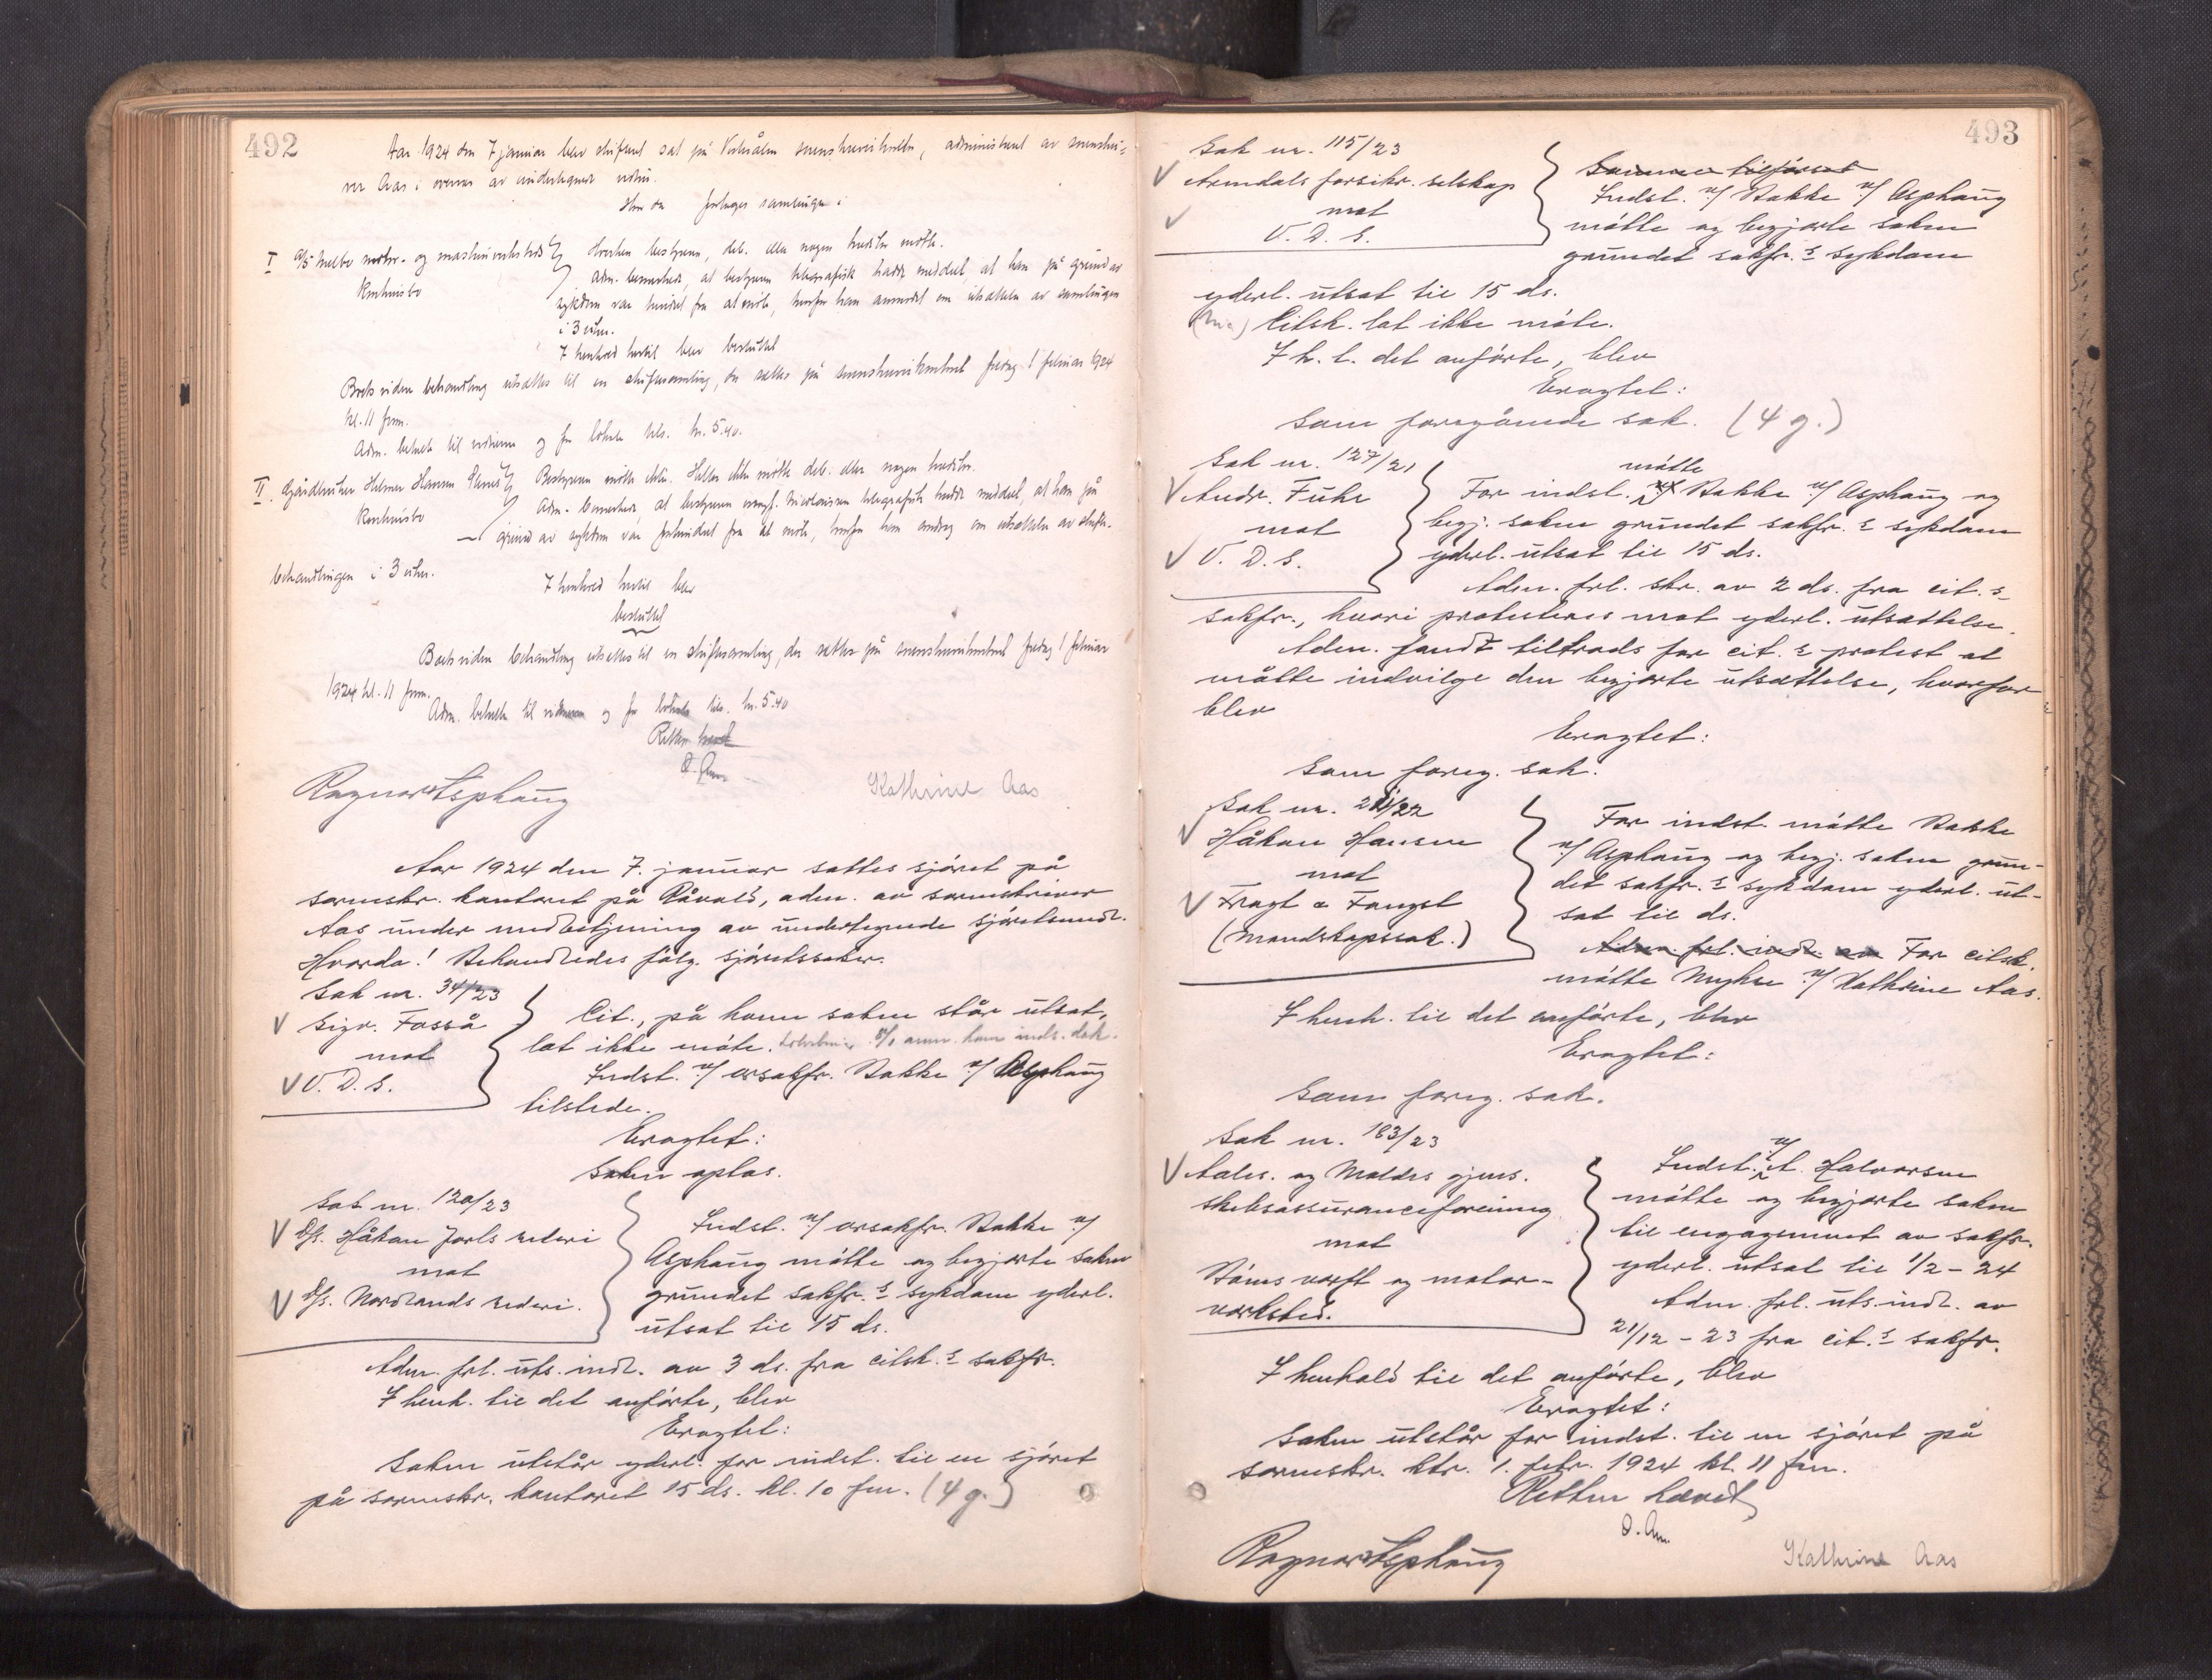 492
Aar 1924 den 7 januar blev skifteret sat på sorenskriverkontoret, administrert av sorenskri-
ver Aas i overvær av undertegnede vidner.
Hvor da foretages samlinger i
I A/S Melbo motor- og maskinverksteds
konkursbo
Hverken bestyreren, deb. eller nogen kreditor møtte.
Adm. bemerket, at bestyreren telegrafisk hadde meddelt, at han på grund av
sykdom var hindret fra at møte, hvorfor han anmodet om utsættelse av samlingen
i 3 uker.
I henhold hertil blev besluttet
Boets videre behandling utsættes til en skiftesamling, der sættes på sorenskriverkontoret fredag 1 februar 1924
kl. 11 form.
Adm. betalte til vidnerne og for lokale tils. kr. 5.40.
II. Gårdbruker Helmer Hansen
konkursbo
Bestyreren møtte ikke. Heller ikke møtte deb. eller nogen kreditor.
Adm. bemerket, at bestyreren telegrafisk hadde meddelt, at han på
grund av sykdom var forhindret fra at møte, hvorfor han androg om utsættelse av skifte-
behandlingen i 3 uker.
I henhold hertil blev
besluttet
Boets videre behandling utsættes til en skiftesamling, der sættes på sorenskriverkontoret fredag 1 februar
1924 kl. 11 form.
Adm. betalte til vidnerne og for lokale tils. kr. 5.40
Retten hævet
O. Aas
Ragnar Asphaug Kathrine Aas
Aar 1924 den 7. januar sattes sjøret på
sorenskr. kontoret på Råvold, adm. av sorenskriver
Aas under medbetjening av undertegnede sjøretsmedl.
Hvorda! Behandledes følg. sjøretssaker.
Sak nr. 34/23
Sigv. Fosså
mot
V. D. S.
Cit., på hvem saken står utsat,
lot ikke møte.
Indst. v/ orsakfr. Bakke v/ Asphaug
tilstede.
Eragtet:
Saken oplas.
Sak nr. 120/23
D/s. Håkon Jarls rederi
mot
D/s. Nordlands rederi.
Indst. v/ orsakfr. Bakke v/
Asphaug møtte og begjærte saken
grundet sakfr.s sykdom yderl.
utsat til 15 ds.
Adm. frl. uts. indl. av 3 ds. fra citsk.s sakfr.
I henh. til det anførte, blev
Eragtet:
Saken utstår yderl. for indst. til en sjøret
på sorenskr. kontoret 15 ds. kl. 10 fm. (4 g.)
493
Sak nr. 115/23
Arendals forsikr. selskap
mot
V. D. S.
Samme tilførsel
Indst. v/ Bakke v/ Asphaug
møtte og begjærte saken
grundet sakfr.s sykdom
yderl. utsat til 15 ds.
Citsk. lot ikke møte.
I h. t. det anførte, blev
Eragtet:
Som foregående sak. (4 g.)
Sak nr. 127/21
Andr. Fuhr
mot
V. D. S.
møtte
For indst. v/ Bakke v/ Asphaug og
begj. saken grundet sakfr.s sykdom
yderl. utsat til 15 ds.
Adm. frl. skr. av 2 ds. fra cit.s
sakfr., hvori protesteres mot yderl. utsættelse.
Adm. fandt tiltrods for cit.s protest at
måtte indvilge den begjærte utsættelse, hvorfor
blev
Eragtet:
Som foreg. sak.
Håkon Hansen
mot
Fragt & Fangst
(Mandskapssak.)
For indst. møtte Bakke
v/ Asphaug og begj. saken grun-
det sakfr.s sykdom yderl. ut-
sat til ds.
Adm. frl. indl. av For citsk.
møtte Myhre v/ Kathrine Aas.
I henh. til det anførte, blev
Eragtet:
Som foreg. sak.
Sak nr. 183/23
Aales. og Moldes gjens.
skibsassuranceforening
mot
Støms værft og motor-
værksted.
Indst. v/ A. Halvorsen
møtte og begjærte saken
til engagement av sakfr.
yderl. utsat til 1/2 - 24
Adm. frl. uts. indl. av
21/12 - 23 fra cit.s sakfr.
I henhold til det anførte, blev
Eragtet:
Saken utstår for indst. til en sjøret på
sorenskr. ktr. 1. febr. 1924 kl. 11 fm.
Retten hævet
O. Aas
Ragnar Asphaug Kathrine Aas